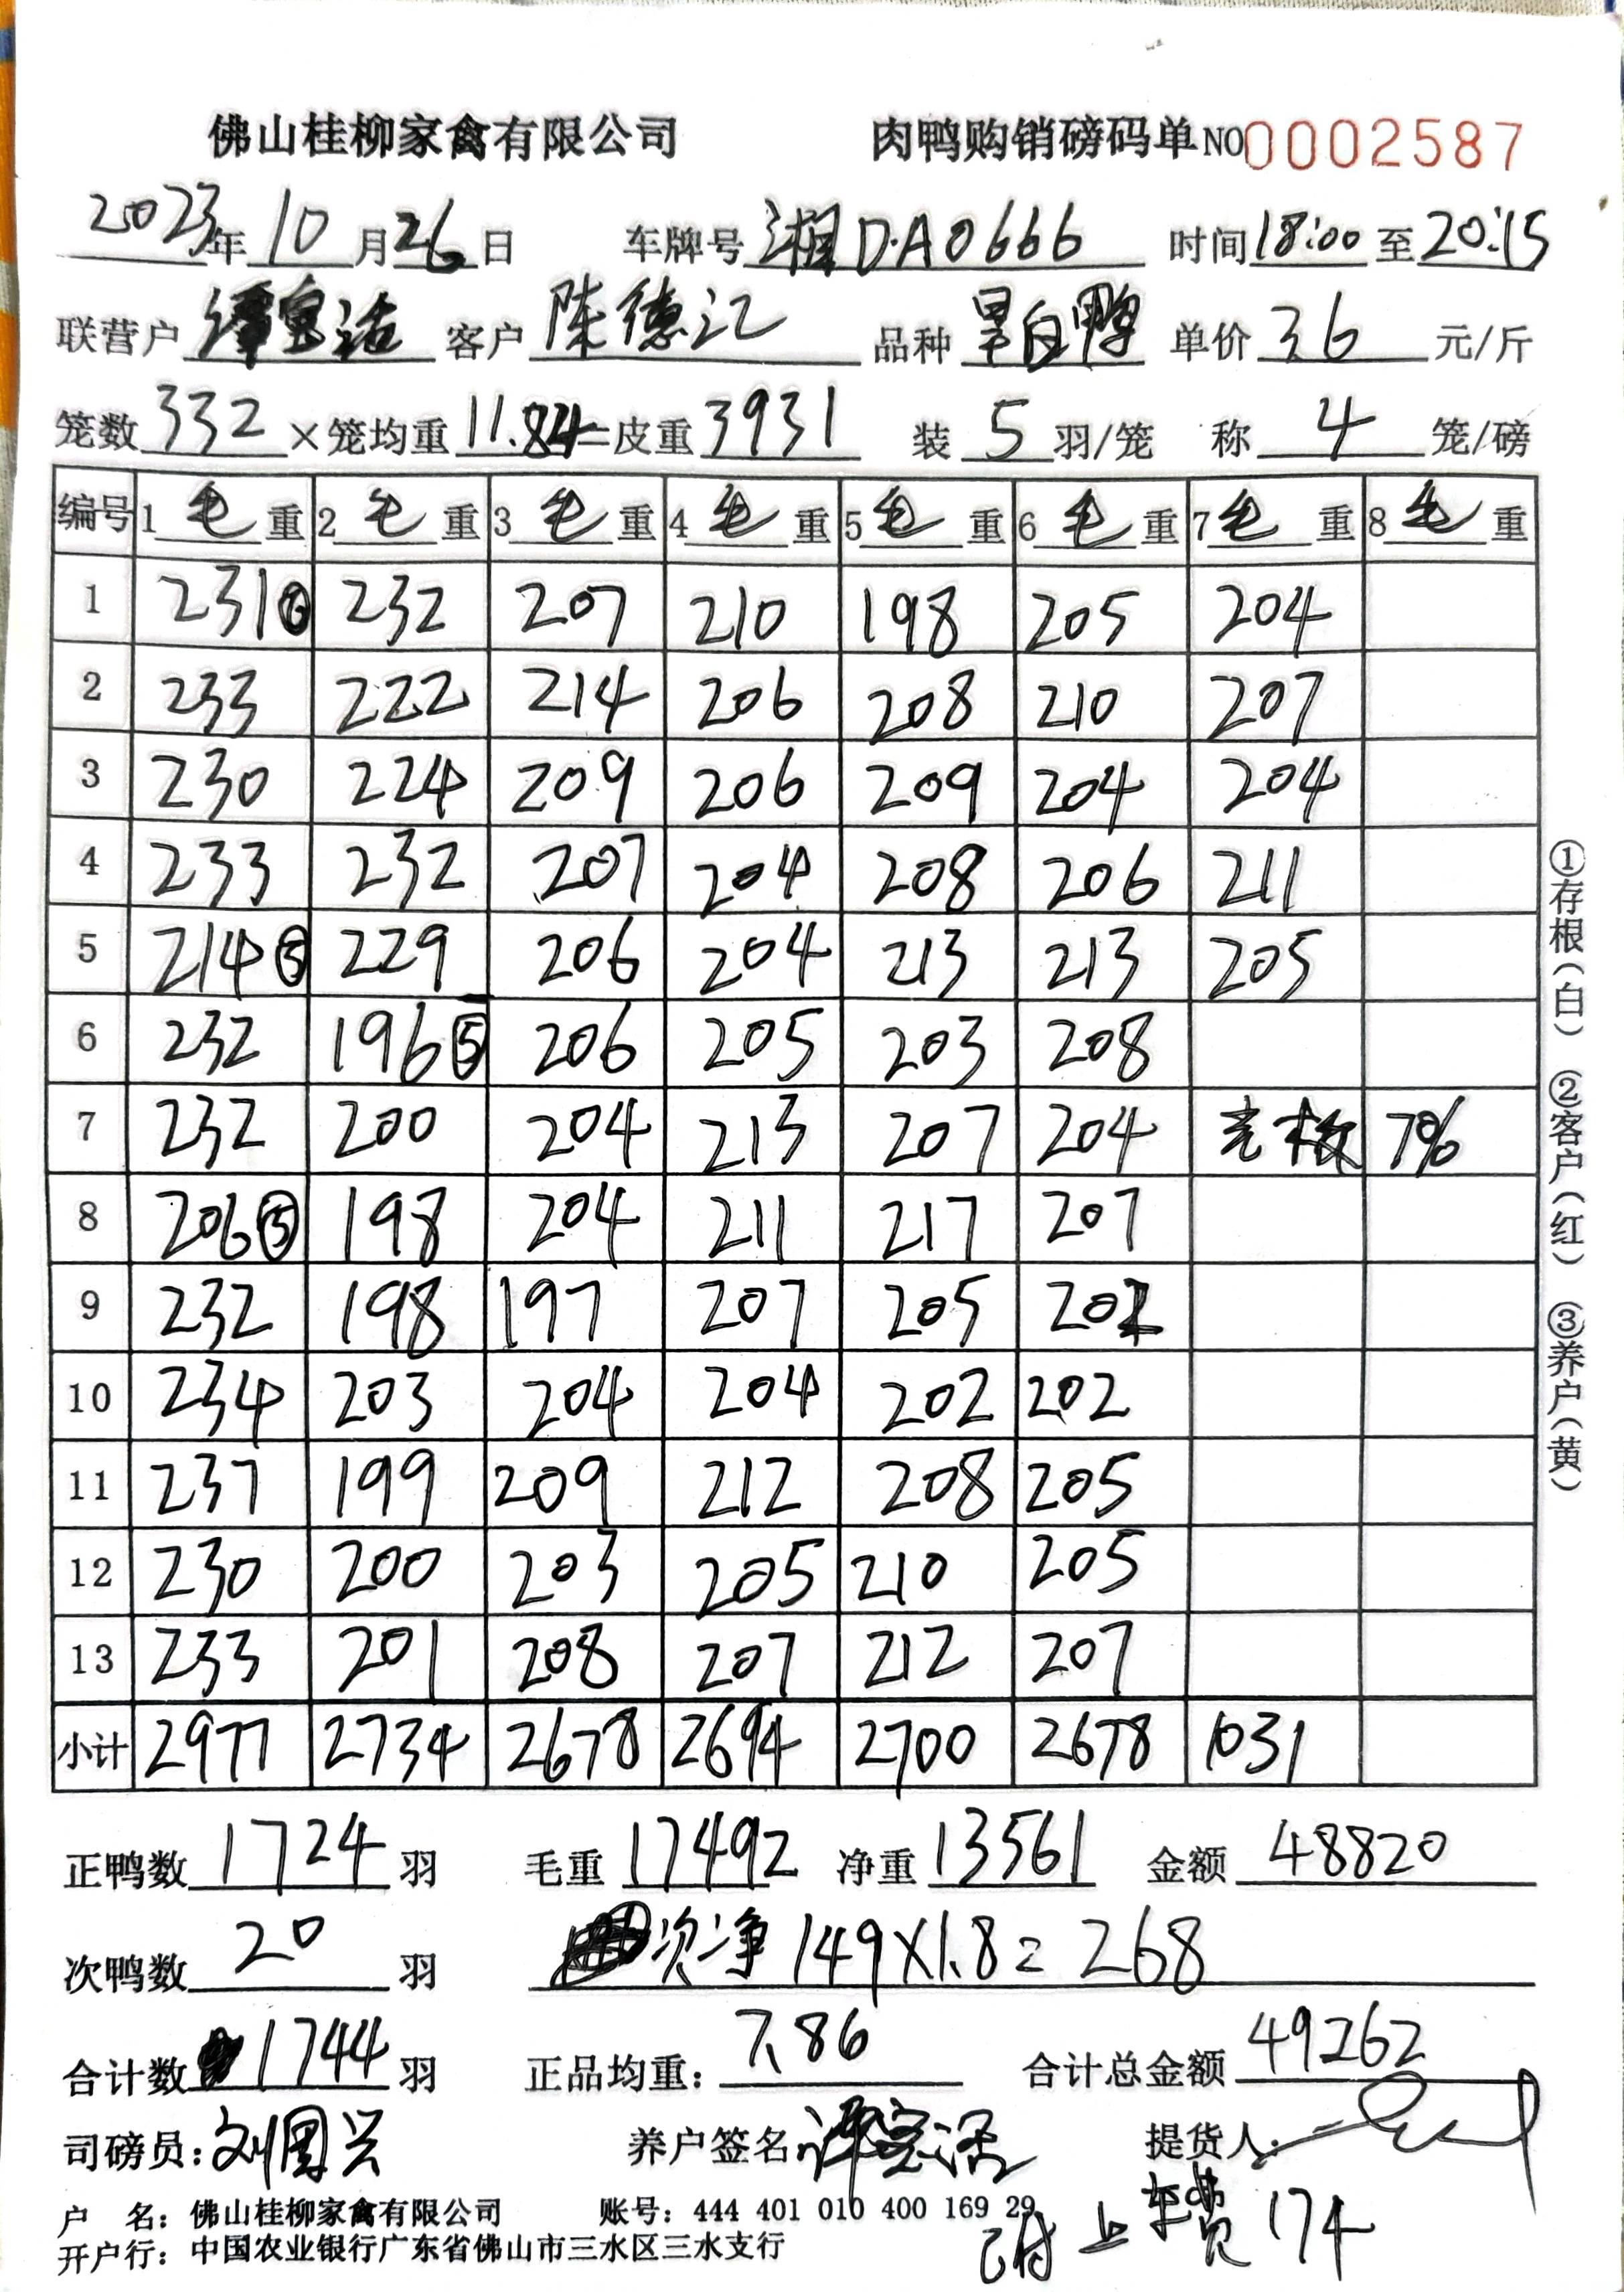 佛山桂柳家禽有限公司 肉鸭购销磅码单NO0002587
2023年10月26日 车牌号湘D·A0666 时间18:00至20:15
联营户 客户陈德江 品种旱白鸭 单价3.6元/斤
笼数332×笼均重11.84=皮重3931 装5羽/笼 称4笼/磅
编号 1毛重 2毛重 3毛重 4毛重 5毛重 6毛重 7毛重 8毛重
1 231⑥ 232 207 210 198 205 204
2 233 222 214 206 208 210 207
3 230 224 209 206 209 204 204
4 233 232 207 204 208 206 211
5 214⑤ 229 206 204 213 213 205
6 232 196⑤ 206 205 203 208
7 232 200 204 213 207 204 毛 7%
8 206⑤ 198 204 211 217 207
9 232 198 197 207 205 202
10 234 203 204 204 202 202
11 237 199 209 212 208 205
12 230 200 203 205 210 205
13 233 201 208 207 212 207
小计 2977 2734 2678 2694 2700 2678 1031
正鸭数1724羽 毛重17492 净重13561 金额48820
次鸭数20羽 次净149×1.8=268
合计数1744羽 正品均重:7.86 合计总金额49262
司磅员:刘国兴 养户签名 提货人:
户 名:佛山桂柳家禽有限公司 账号:444 401 010 400 169 29
开户行:中国农业银行广东省佛山市三水区三水支行
已付上车费174
①存根(白) ②客户(红) ③养户(黄)